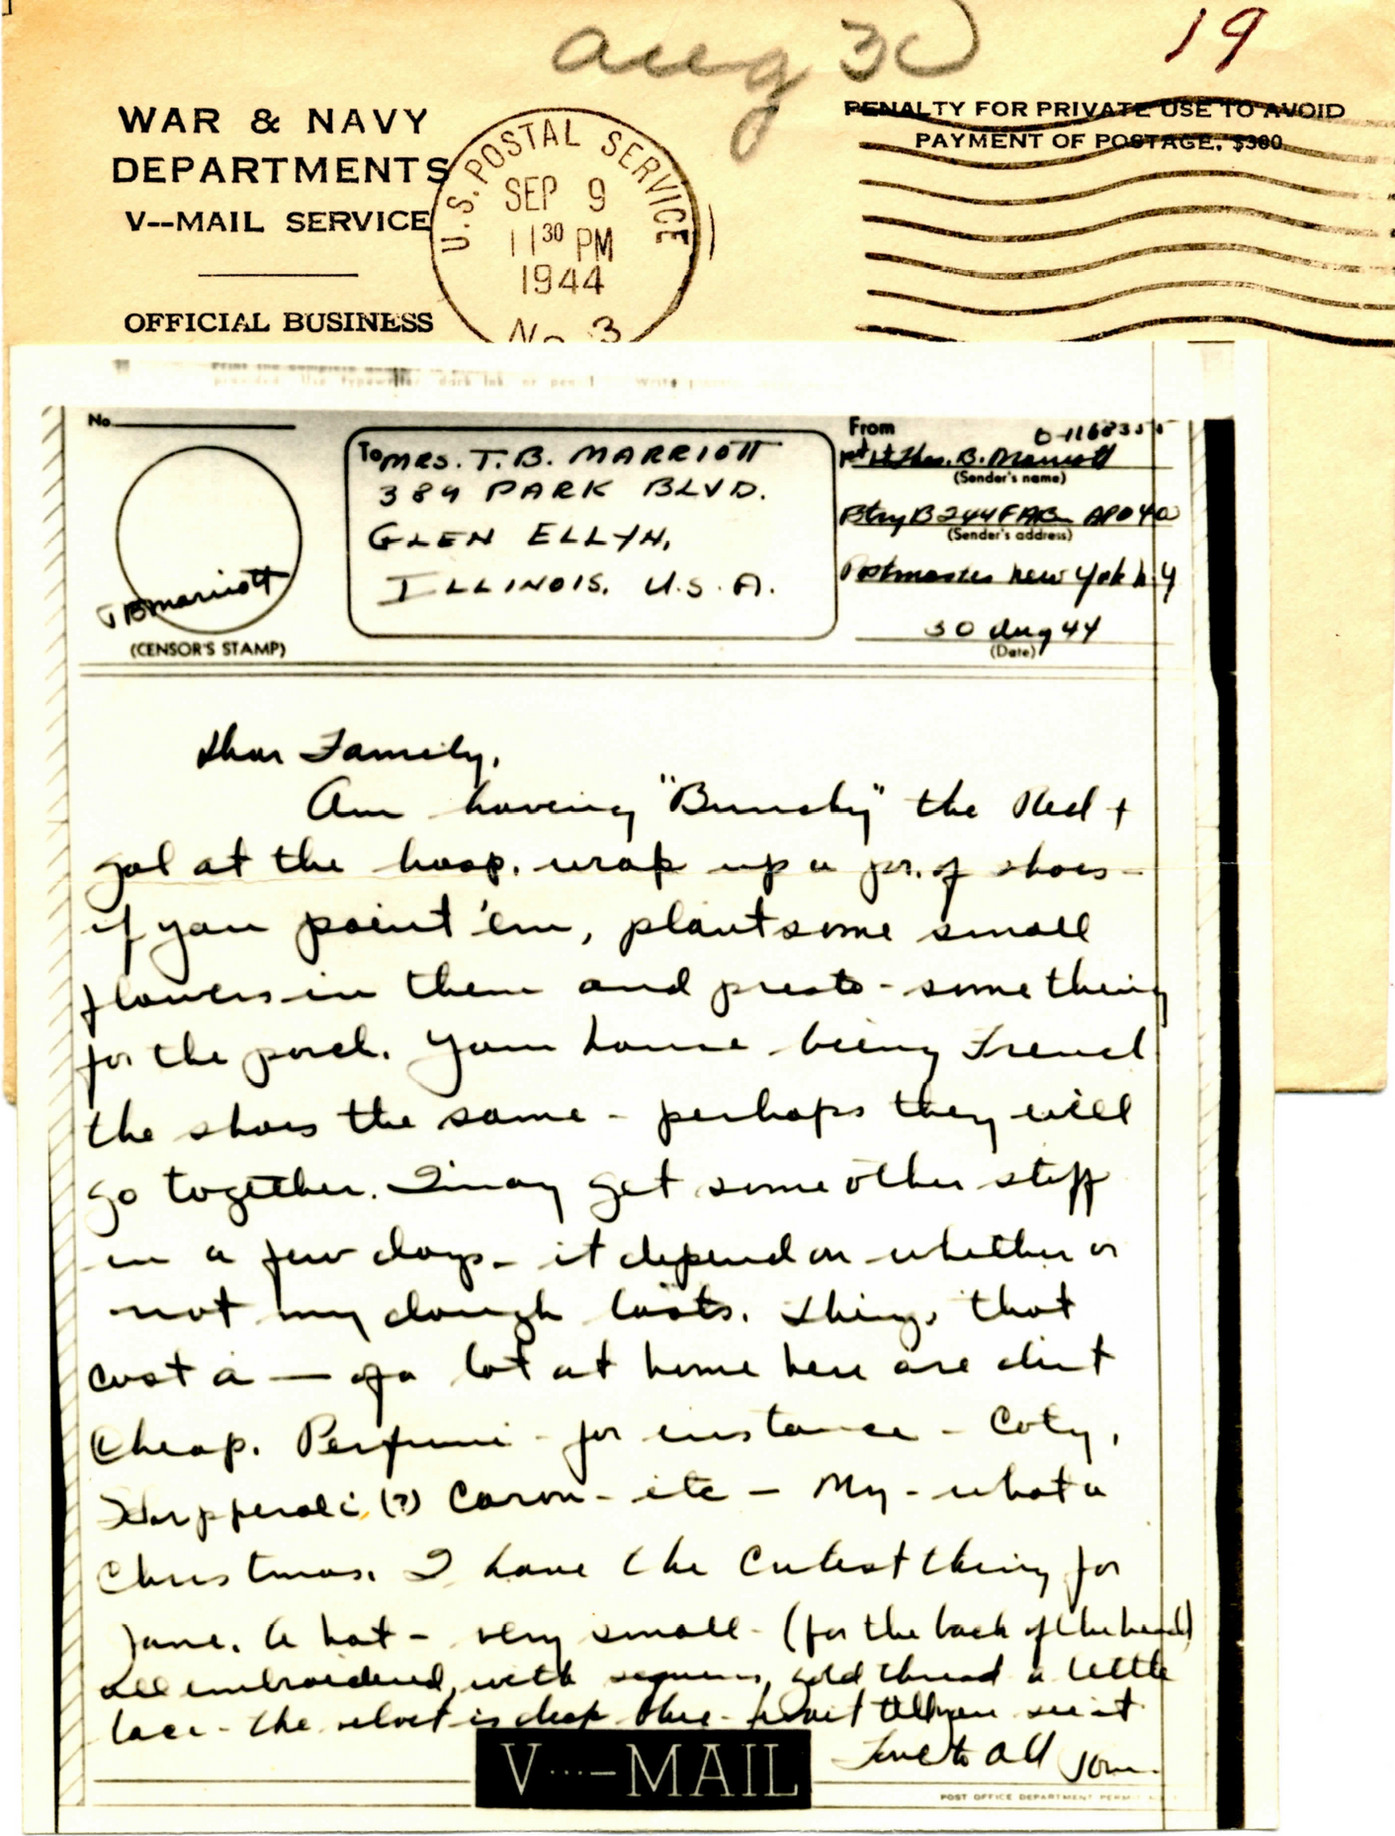 Aug 30
19
WAR & NAVY
DEPARTMENTS
V--MAIL SERVICE
OFFICIAL BUSINESS
U.S. POSTAL SERVICE
SEP 9
11 30 PM
1944
No. 3
PENALTY FOR PRIVATE USE TO AVOID
PAYMENT OF POSTAGE, $300
No.
(CENSOR'S STAMP)
TBMarriott
To MRS. T. B. MARRIOTT
389 PARK BLVD.
GLEN ELLYN,
ILLINOIS. U.S.A.
From
1st Lt Thos. B. Marriott
(Sender's name)
Btry B 244 FAB APO 40
(Sender's address)
Postmaster New York N Y
30 Aug 44
(Date)
Dear Family,
Am having "Bunchy" the Red +
gal at the hosp. wrap up a pr. of shoes -
if you paint 'em, plant some small
flowers in them and presto - something
for the porch. Your house being French
the shoes the same - perhaps they will
go together. I may get some other stuff
in a few days - it depend on whether or
not my dough lasts. Things that
cost a — of a lot at home here are dirt
cheap. Perfume - for instance - Coty,
(?) Caron - etc - My - what a
Christmas. I have the cutest thing for
Jane. A hat - very small - (for the back of the head)
all embroidered, with sequins, gold thread a little
lace - the velvet is deep blue - wait till you see it
Love to all Tom.
V···—MAIL
POST OFFICE DEPARTMENT PERMIT